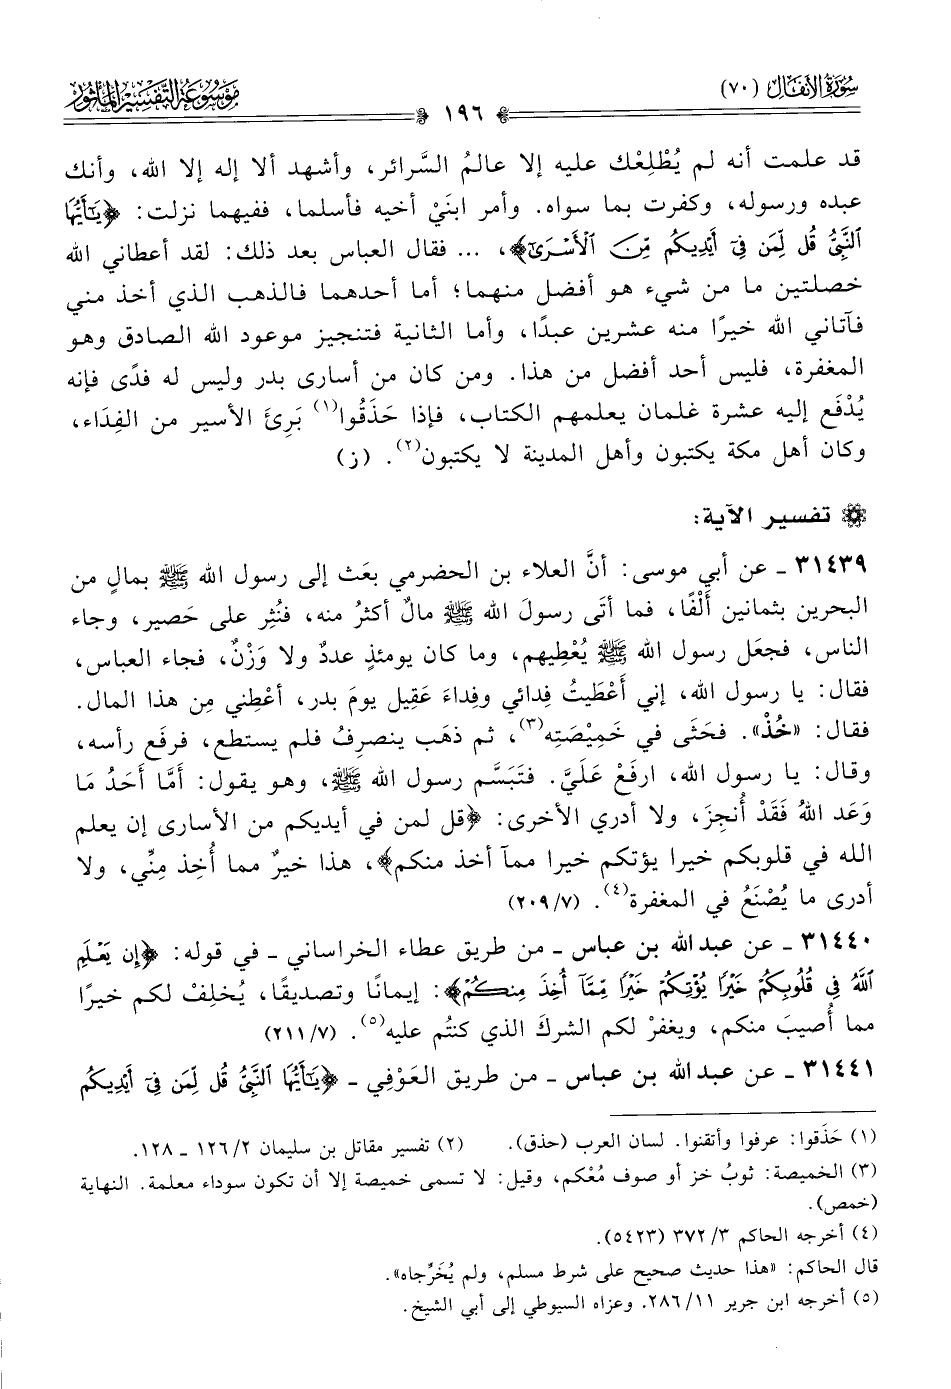 سورة الأنفال (٧٠)
١٩٦
موسوعة التفسير المأثور
قد علمت أنه لم يُطْلِعْك عليه إلا عالمُ السَّرائر، وأشهد ألا إله إلا الله، وأنك
عبده ورسوله، وكفرت بما سواه. وأمر ابنَيْ أخيه فأسلما، ففيهما نزلت: ﴿يَٰٓأَيُّهَا
ٱلنَّبِىُّ قُل لِّمَن فِىٓ أَيْدِيكُم مِّنَ ٱلْأَسْرَىٰٓ﴾، ... فقال العباس بعد ذلك: لقد أعطاني الله
خصلتين ما من شيء هو أفضل منهما؛ أما أحدهما فالذهب الذي أخذ مني
فآتاني الله خيرًا منه عشرين عبدًا، وأما الثانية فتنجيز موعود الله الصادق وهو
المغفرة، فليس أحد أفضل من هذا. ومن كان من أسارى بدر وليس له فدًى فإنه
يُدْفَع إليه عشرة غلمان يعلمهم الكتاب، فإذا حَذَقُوا(١) بَرِئَ الأسير من الفِدَاء،
وكان أهل مكة يكتبون وأهل المدينة لا يكتبون(٢). (ز)
تفسير الآية:
٣١٤٣٩ ـ عن أبي موسى: أنَّ العلاء بن الحضرمي بعَث إلى رسول الله ﷺ بمالٍ من
البحرين بثمانين أَلْفًا، فما أتَى رسولَ الله ﷺ مالٌ أكثرُ منه، فنُثِر على حَصير، وجاء
الناس، فجعَل رسول الله ﷺ يُعْطِيهم، وما كان يومئذٍ عددٌ ولا وَزْنٌ، فجاء العباس،
فقال: يا رسول الله، إني أَعْطَيتُ فِدائي وفِداءَ عَقِيل يومَ بدر، أعْطِني مِن هذا المال.
فقال: «خُذْ». فحَثَى في خَمِيْصَتِه(٣)، ثم ذهَب ينصرِفُ فلم يستطع، فرفَع رأسه،
وقال: يا رسول الله، ارفَعْ عَلَيَّ. فتَبَسَّم رسول الله ﷺ، وهو يقول: أمَّا أحَدُ مَا
وَعَد اللهُ فَقَدْ أُنجِزَ، ولا أدري الأخرى: ﴿قل لمن في أيديكم من الأسارى إن يعلم
الله في قلوبكم خيرا يؤتكم خيرا ممآ أخذ منكم﴾، هذا خيرٌ مما أُخِذ مِنِّي، ولا
أدرى ما يُصْنَعُ في المغفرة(٤). (٢٠٩/٧)
٣١٤٤٠ ـ عن عبد الله بن عباس ـ من طريق عطاء الخراساني ـ في قوله: ﴿إِن يَعْلَمِ
ٱللَّهُ فِى قُلُوبِكُمْ خَيْرًا يُؤْتِكُمْ خَيْرًا مِّمَّآ أُخِذَ مِنكُمْ﴾: إيمانًا وتصديقًا، يُخلِف لكم خيرًا
مما أُصيبَ منكم، ويغفرْ لكم الشركَ الذي كنتُم عليه(٥). (٢١١/٧)
٣١٤٤١ ـ عن عبد الله بن عباس ـ من طريق العَوْفِي ـ ﴿يَٰٓأَيُّهَا ٱلنَّبِىُّ قُل لِّمَن فِىٓ أَيْدِيكُم
(١) حَذَقوا: عرفوا وأتقنوا. لسان العرب (حذق). (٢) تفسير مقاتل بن سليمان ١٢٦/٢ ـ ١٢٨.
(٣) الخميصة: ثوبُ خز أو صوف مُعْكم، وقيل: لا تسمى خميصة إلا أن تكون سوداء معلمة. النهاية
(خمص).
(٤) أخرجه الحاكم ٣٧٢/٣ (٥٤٢٣).
قال الحاكم: «هذا حديث صحيح على شرط مسلم، ولم يُخَرِّجاه».
(٥) أخرجه ابن جرير ٢٨٦/١١. وعزاه السيوطي إلى أبي الشيخ.